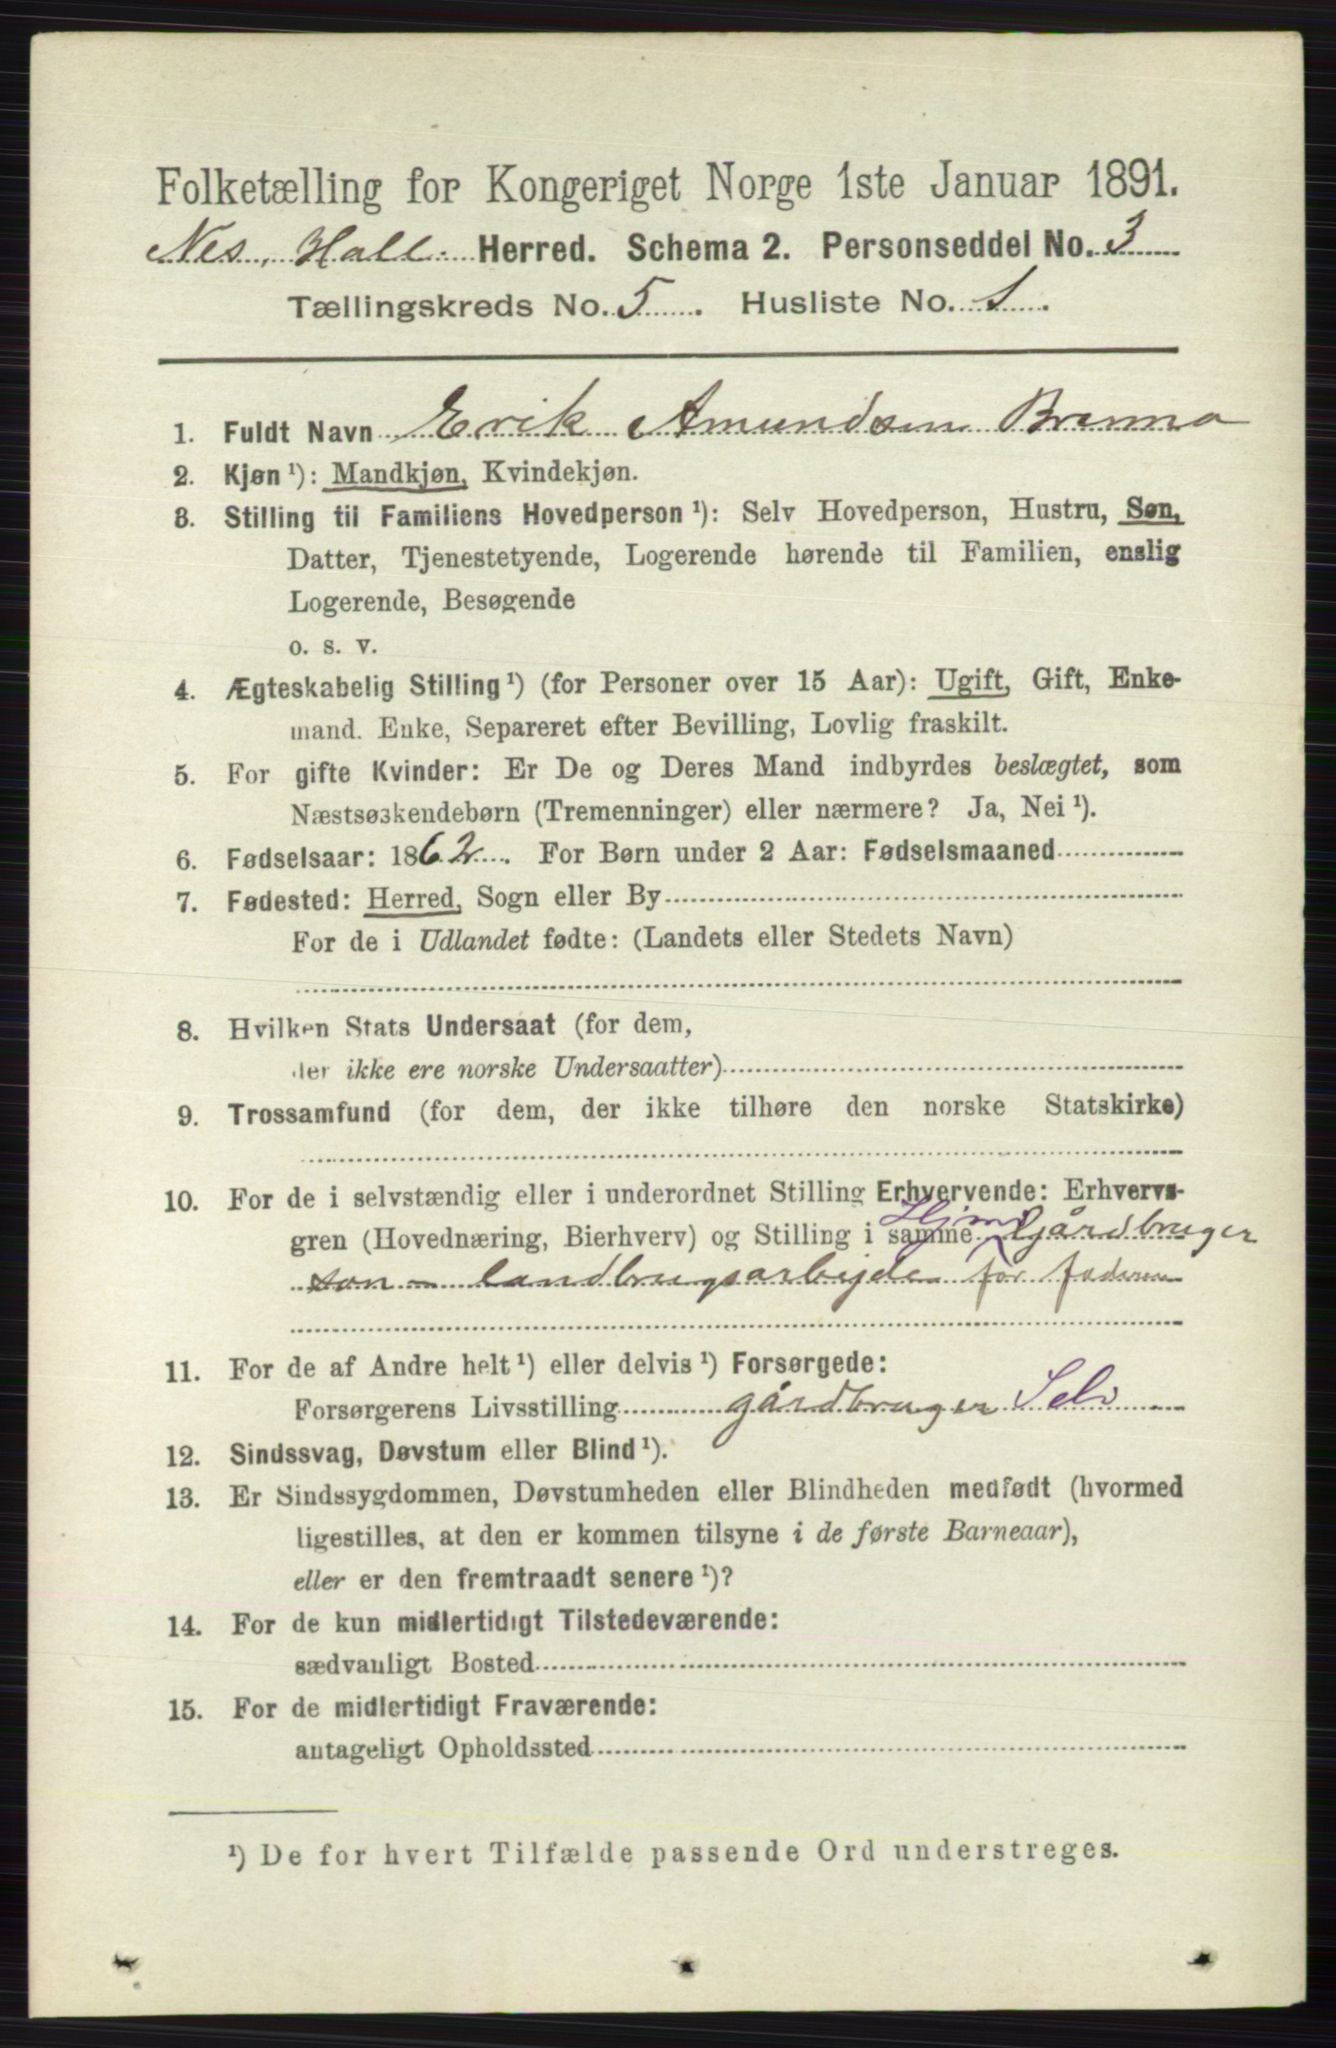 Folketælling for Kongeriget Norge 1ste Januar 1891.
Nes, Hall. Herred. Schema 2. Personseddel No. 3
Tællingskreds No. 5. Husliste No. 1.
1. Fuldt Navn Erik Amundsen Brenno
2. Kjøn ¹): Mandkjøn, Kvindekjøn.
3. Stilling til Familiens Hovedperson ¹): Selv Hovedperson, Hustru, Søn,
Datter, Tjenestetyende, Logerende hørende til Familien, enslig
Logerende, Besøgende
o. s. v.
4. Ægteskabelig Stilling ¹) (for Personer over 15 Aar): Ugift, Gift, Enke-
mand. Enke, Separeret efter Bevilling, Lovlig fraskilt.
5. For gifte Kvinder: Er De og Deres Mand indbyrdes beslægtet, som
Næstsøskendebørn (Tremenninger) eller nærmere? Ja, Nei ¹).
6. Fødselsaar: 1862. For Børn under 2 Aar: Fødselsmaaned
7. Fødested: Herred, Sogn eller By
For de i Udlandet fødte: (Landets eller Stedets Navn)
8. Hvilken Stats Undersaat (for dem,
der ikke ere norske Undersaatter)
9. Trossamfund (for dem, der ikke tilhøre den norske Statskirke)
10. For de i selvstændig eller i underordnet Stilling Erhvervende: Erhvervs-
gren (Hovednæring, Bierhverv) og Stilling i samme Hjmv gårdbruger
søn - landbrugsarbejde for faderen
11. For de af Andre helt ¹) eller delvis ¹) Forsørgede:
Forsørgerens Livsstilling gårdbruger Selv
12. Sindssvag, Døvstum eller Blind ¹).
13. Er Sindssygdommen, Døvstumheden eller Blindheden medfødt (hvormed
ligestilles, at den er kommen tilsyne i de første Barneaar),
eller er den fremtraadt senere ¹)?
14. For de kun midlertidigt Tilstedeværende:
sædvanligt Bosted
15. For de midlertidigt Fraværende:
antageligt Opholdssted
¹) De for hvert Tilfælde passende Ord understreges.